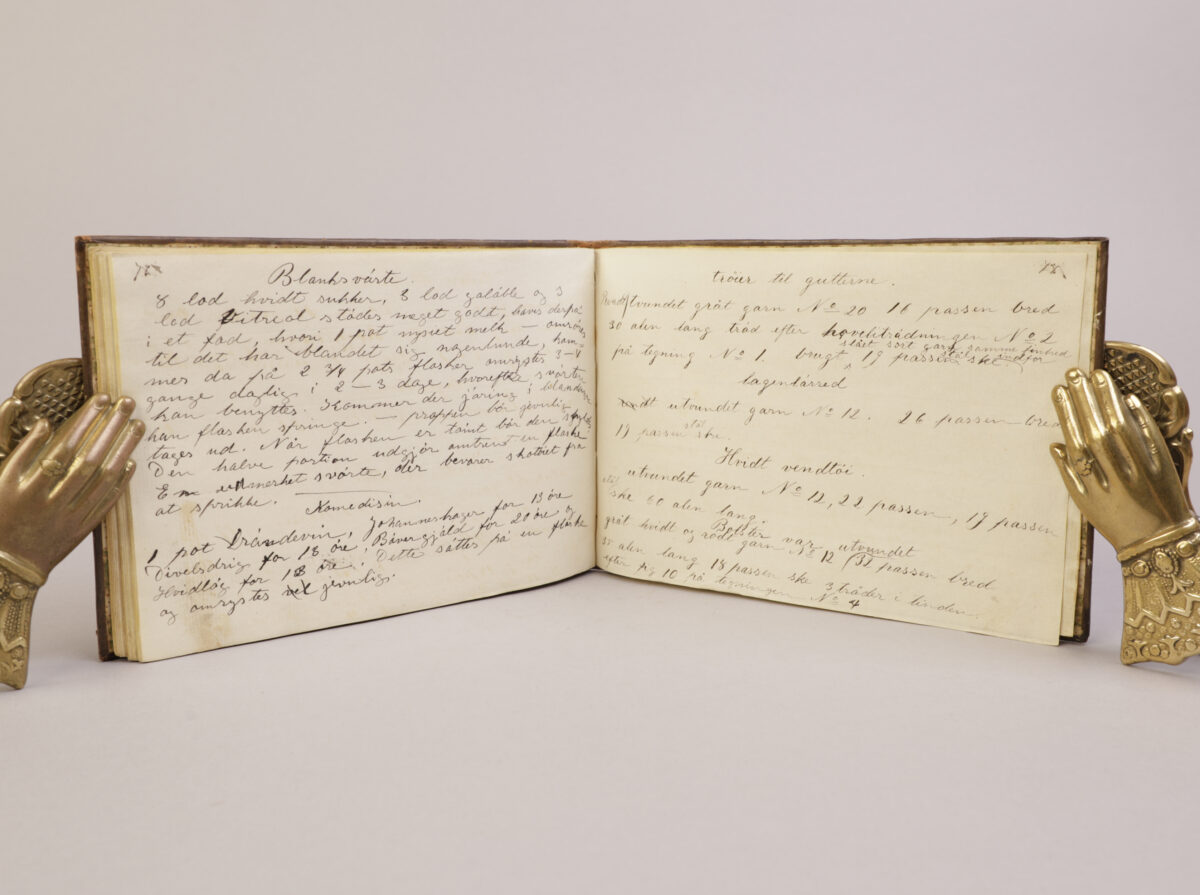 78
Blanksvärte.
8 lod hvidt sukker, 8 lod galäble og 3
lod Vitreol stödes meget godt, haves derpå
i et fad, hvori 1 pot nysiet melk — omröres
til det har blandet sig nogenlunde, kom-
mes da på 2 3/4 pots flasker omrystes 3-4
gange daglig i 2-3 dage, hvorefter svärten
kan benyttes. Kommer der järing i blandingen
kan flasken springe. — proppen bör jevnlig
tages ud. Når flasken er tömt bör den
Den halve portion udgjör omtrent en flaske
En udmerket svärte, der bevarer skotöiet fra
at sprikke.
Komedisin.
1 pot Brändevin, Johanneshager for 13 öre
Divelsdrig for 18 öre, Bävergjäld for 20 öre og
Hvidlög for 18 öre. Dette sättes på en flaske
og omrystes jevnlig.
78
tröier til gutterne.
utvundet gråt garn No 20 16 passen bred
30 alen lang träd efter hoveltrådningen No 2
slået sort garn samme bred
på tegning No 1. brugt 19 passen stål ske indför
bagentårred
utvundet garn No 12. 26 passen bred
19 passen stål ske.
Hvidt vendtöi
utvundet garn No 12, 22 passen, 19 passen
ske 60 alen lang.
Bolster var utvundet
gråt hvidt og rödt garn No 12 passen bred
35 alen lang 18 passen ske 3 tråder i tinden
efter fig 10 på tegningen No 4